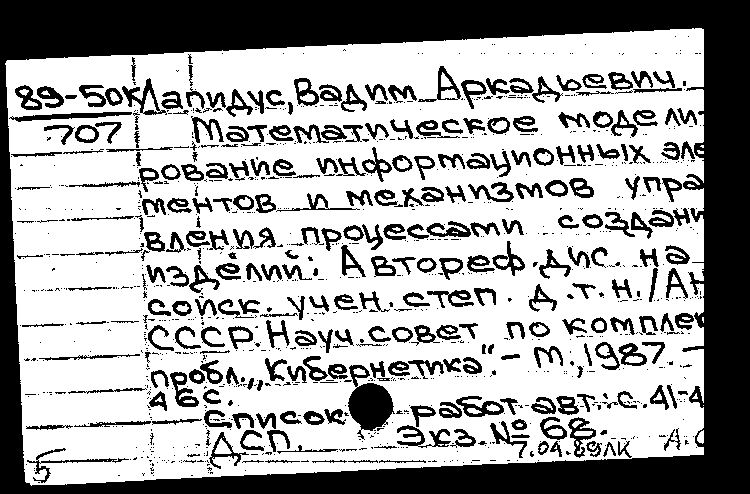 89-50к Лапидус, Вадим Аркадьевич.
707 Математическое модели-
рование информационных эле
ментов и механизмов упра
вления процессами создани
изделий: Автореф. дис. на
соиск. учен. степ. д.т.н./АН
СССР. Науч. совет по комплек
пробл. „Кибернетика". – М., 1987. –
46с.
Список работ авт.: с. 41-4
ДСП. Экз. № 68.
7.04.89ЛК
5